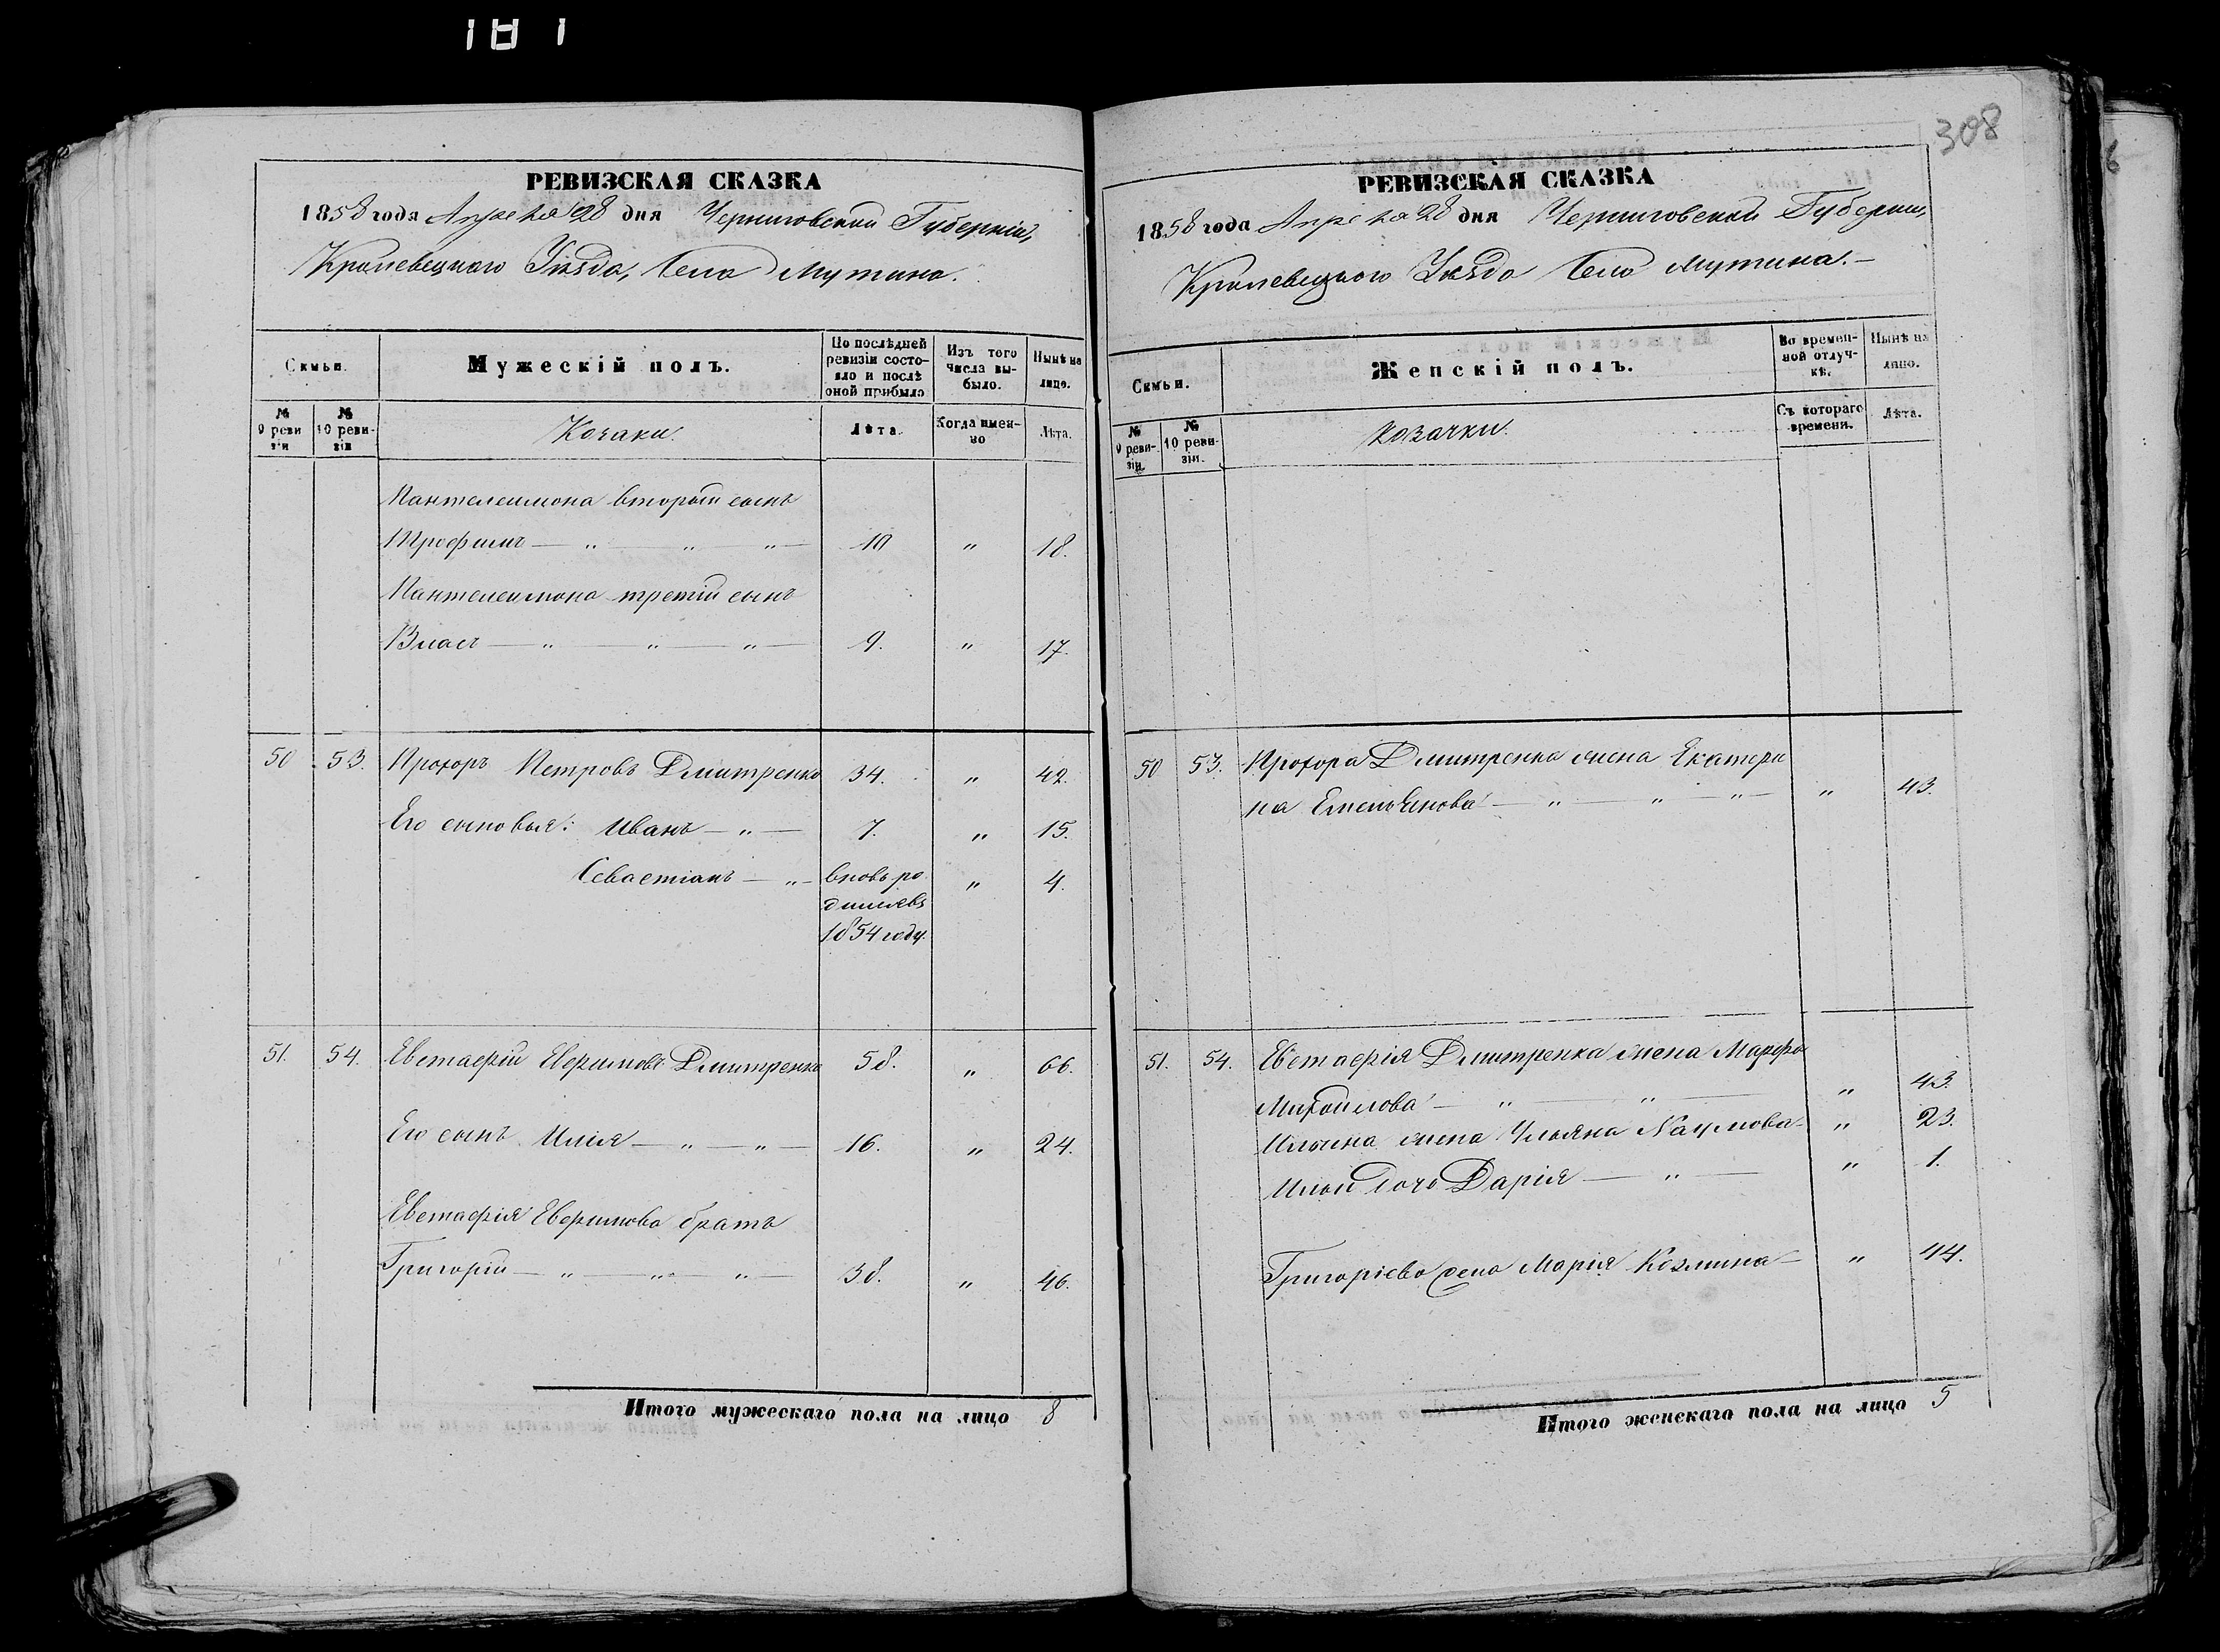 181
308
РЕВИЗСКАЯ СКАЗКА
1858 года Апреля 28 дня Черниговской Губерніи,
Кролевецкаго Уѣзда, Села Мутина.
Семьи.
Мужескій полъ.
По послѣдней ревизіи состояло и послѣ оной прибыло
Изъ того числа выбыло.
Нынѣ на лицо.
№ 9 ревизіи
№ 10 ревизіи
Козаки.
Лѣта.
Когда именно
Лѣта.
Пантелеимона вторый сынъ
Трофимъ — „ — „ — „ — 10 „ 18.
Пантелеимона третій сынъ
Власъ — „ — „ — „ — 9. „ 17.
50 53. Прохоръ Петровъ Дмитренко 34. „ 42.
Его сыновья: Иванъ — „ — 7. „ 15.
Севастіанъ — „ — вновь ро- „ 4.
дился въ
1854 году.
51. 54. Евстафій Евфимовъ Дмитренко 58. „ 66.
Его сынъ Илія — „ — „ — 16. „ 24.
Евстафія Евфимова братъ
Григорій — „ — „ — „ — 38. „ 46.
Итого мужескаго пола на лицо 8
РЕВИЗСКАЯ СКАЗКА
1858 года Апреля 28 дня Черниговской Губерніи,
Кролевецкаго Уѣзда Села Мутина.—
Семьи.
Женскій полъ.
Во временной отлучкѣ.
Нынѣ на лицо.
№ 9 ревизіи.
№ 10 ревизіи.
Козачки.
Съ котораго времени.
Лѣта.
50 53. Прохора Дмитренка жена Екатери
на Емельянова — „ — „ — „ — „ 43.
51. 54. Евстафія Дмитренка жена Марфа
Михайлова — „ — „ — „ 43.
Ильина жена Ульяна Наумова — „ 23.
Ильи дочь Дарія — „ — „ 1.
Григоріева жена Марія Козмина — „ 44.
Итого женскаго пола на лицо 5